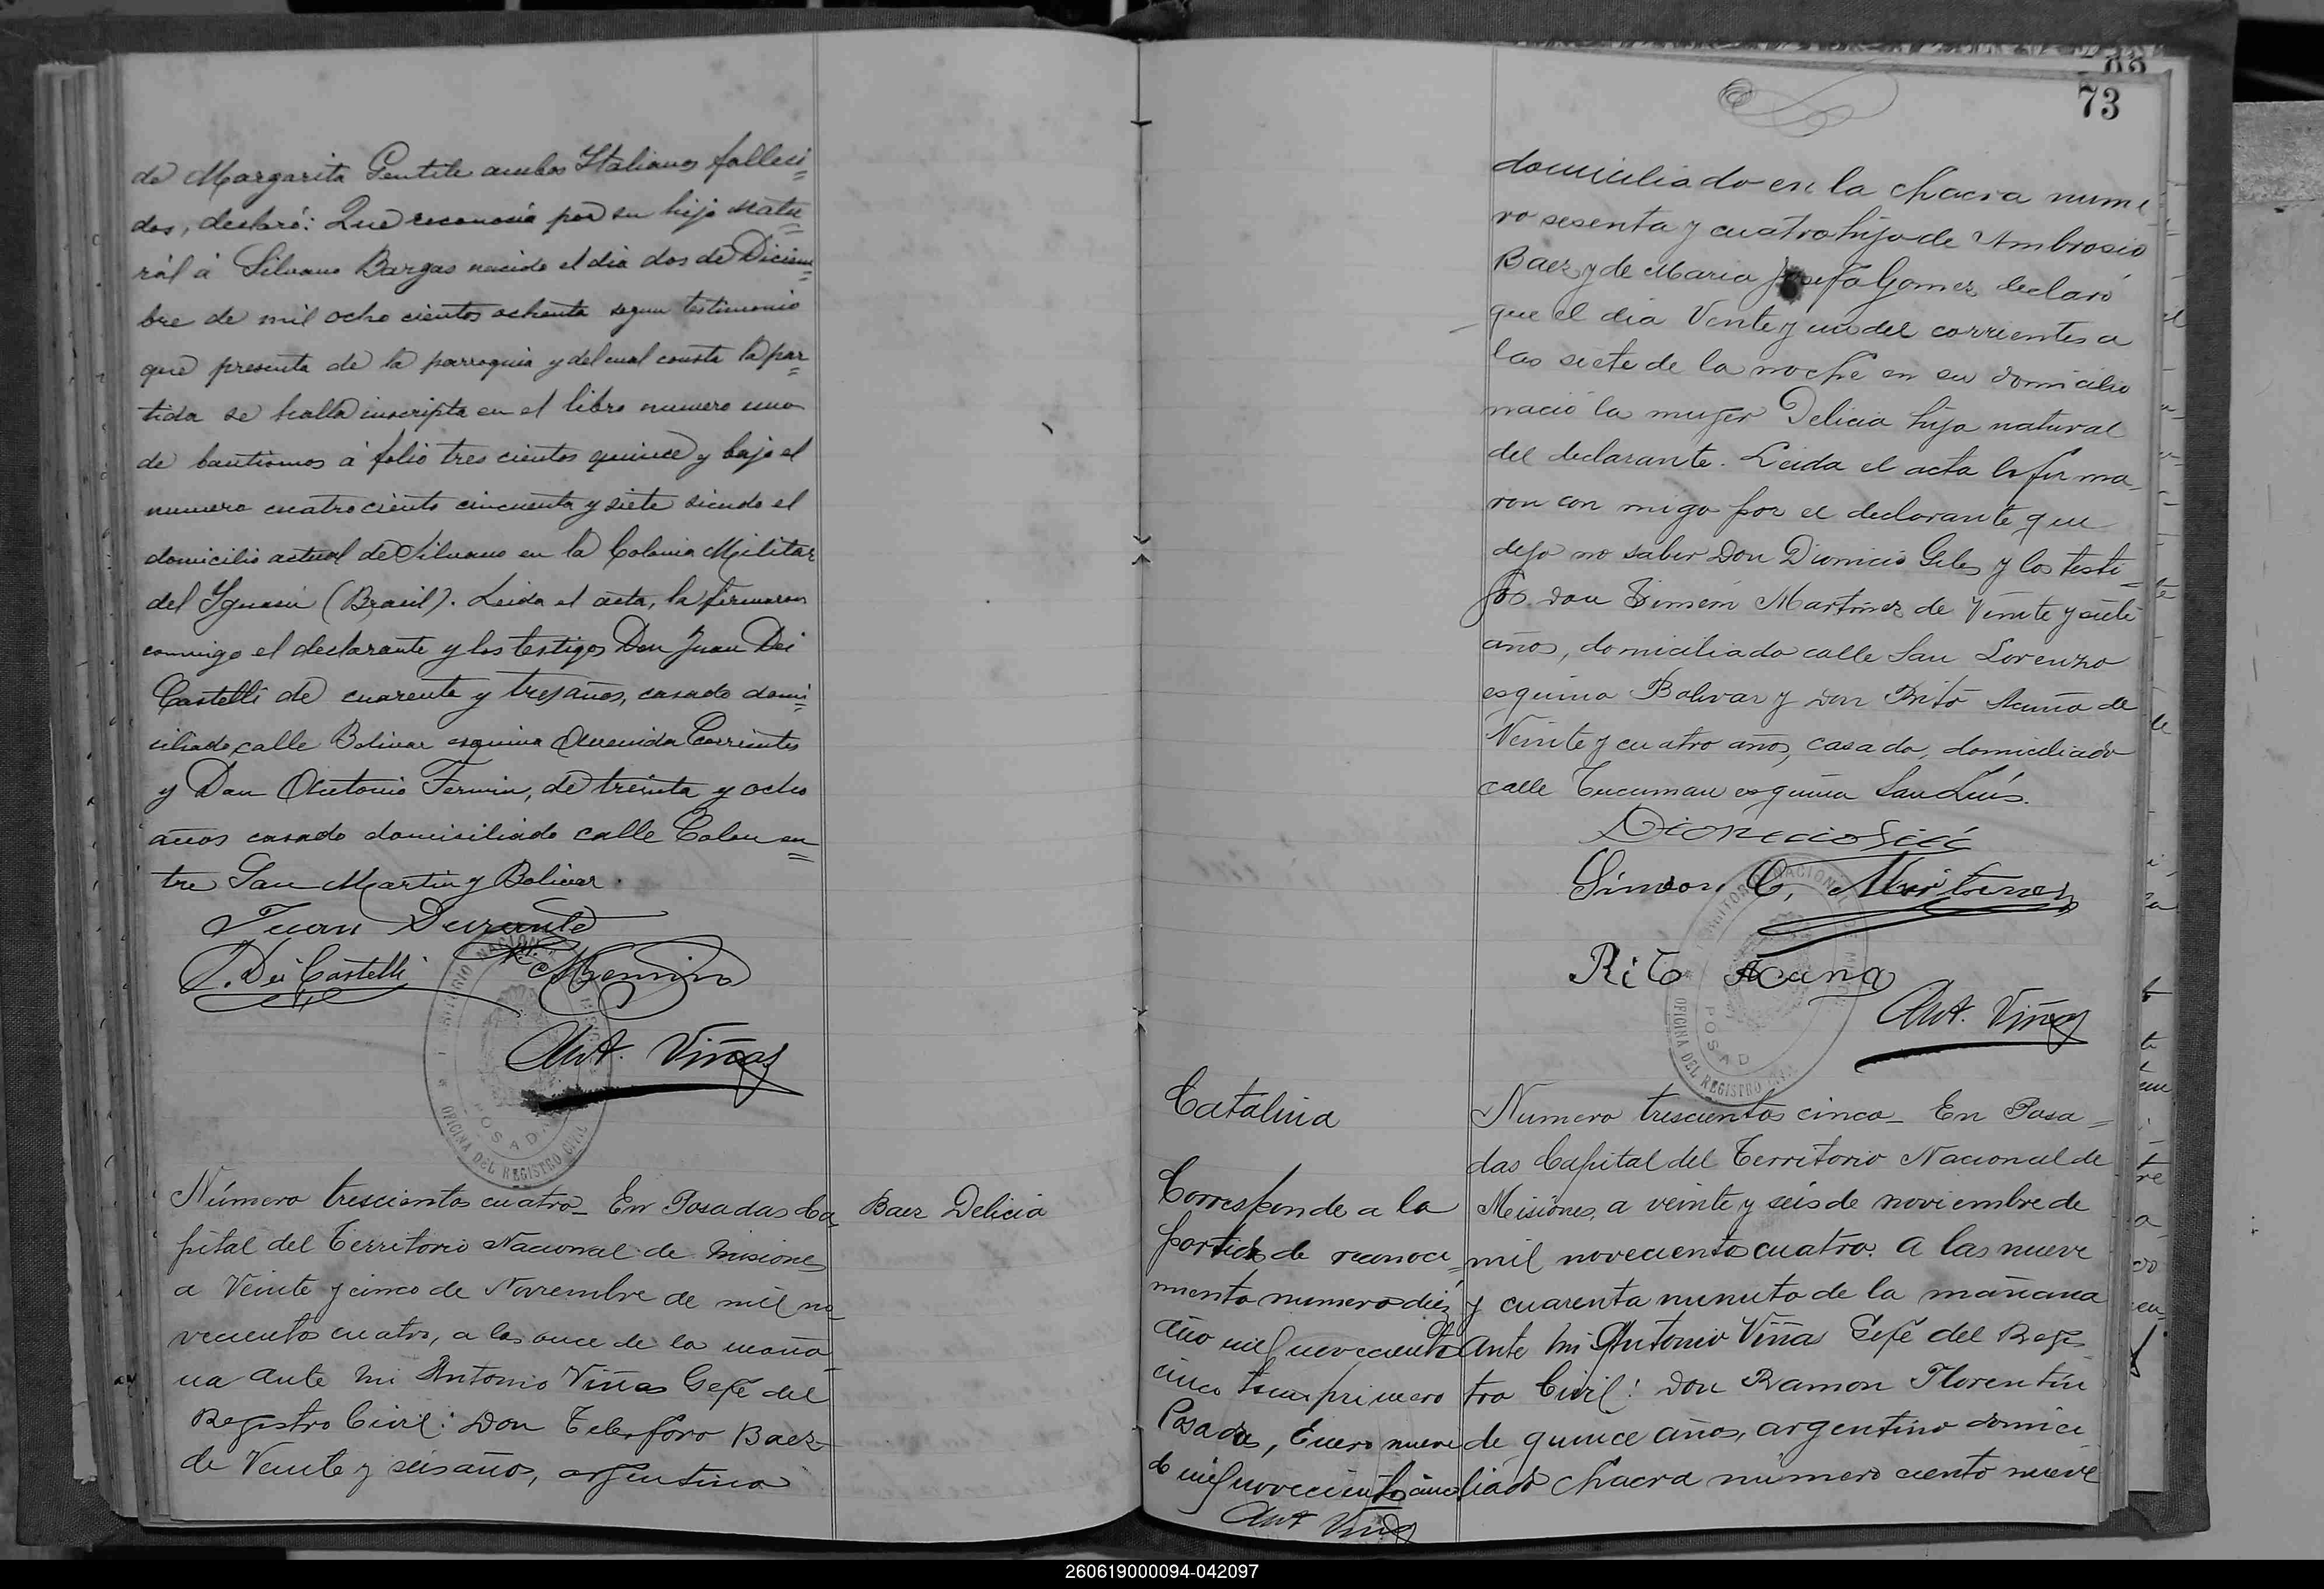 de Margarita Gentile ambos Italianos falleci=
dos, declaró: Que reconocia por su hijo natu=
rál á Silvano Bargas nacido el dia dos de Diciem=
bre de mil ocho cientos ochenta segun testimonio
que presenta de la parroquia y del cual consta la par=
tida se halla inscripta en el libro numero uno
de bautismos á folio tres cientos quince y bajo el
numero cuatro ciento cincuenta y siete siendo el
domicilio actual de Silvano en la Colonia Militar
del Yguasú (Brasil). Leida el acta, la firmaron
conmigo el declarante y los testigos Don Juan Dei
Castelli de cuarenta y tres años, casado domi=
ciliado calle Bolivar esquina Avenida Corrientes
y Don Antonio Fermin, de treinta y ocho
años casado domiciliado calle Colon en=
tre San Martin y Bolivar.
Juan Durante
J. Dei Castelli
Ant. Viñas
TERRITORIO NACIONAL DE MISIONES
OFICINA DEL REGISTRO CIVIL
POSADAS
Número trescientos cuatro_ En Posadas Ca
pital del Territorio Nacional de Misiones
a Veinte y cinco de Noviembre de mil no_
vecientos cuatro, a las once de la maña_
na ante mi Antonio Viñas Gefe del
Registro Civil: Don Telesforo Baez
de Veinte y seis años, argentino
Baez Delicia
88
73
domiciliado en la chacra nume
ro sesenta y cuatro hijo de Ambrosio
Baez y de Maria Josefa Gomez declaró
que el dia Veinte y uno del corrientes a
las siete de la noche en su domicilio
nació la muger Delicia hija natural
del declarante. Leida el acta la firma_
ron con migo por el declarante que
dijo no saber Don Dionicio Giles y los testi_
gos don Simón Martinez de Veinte y siete
años, domiciliado calle San Lorenzo
esquina Bolivar y don Rito Acuña de
Veinte y cuatro años, casado, domiciliado
calle Tucuman esquina San Luis.
Simeon C. Martinez
Rito Acuña
Ant. Viñas
TERRITORIO NACIONAL DE MISIONES
OFICINA DEL REGISTRO CIVIL
POSADAS
Catalina
Corresponde a la
partida de reconoci=
miento numero diez
año mil novecientos
cinco tomo primero
Posadas, Enero nueve
de mil novecientos cinco
Ant Viñas
Numero trescientos cinco_ En Posa=
das Capital del Territorio Nacional de
Misiones, a veinte y seis de noviembre de
mil novecientos cuatro. a las nueve
y cuarenta minuto de la mañana
ante mi Antonio Viñas Gefe del Regis_
tro Civil: Don Ramon Florentin
de quince años, argentino domici_
liado chacra número ciento nueve
260619000094-042097